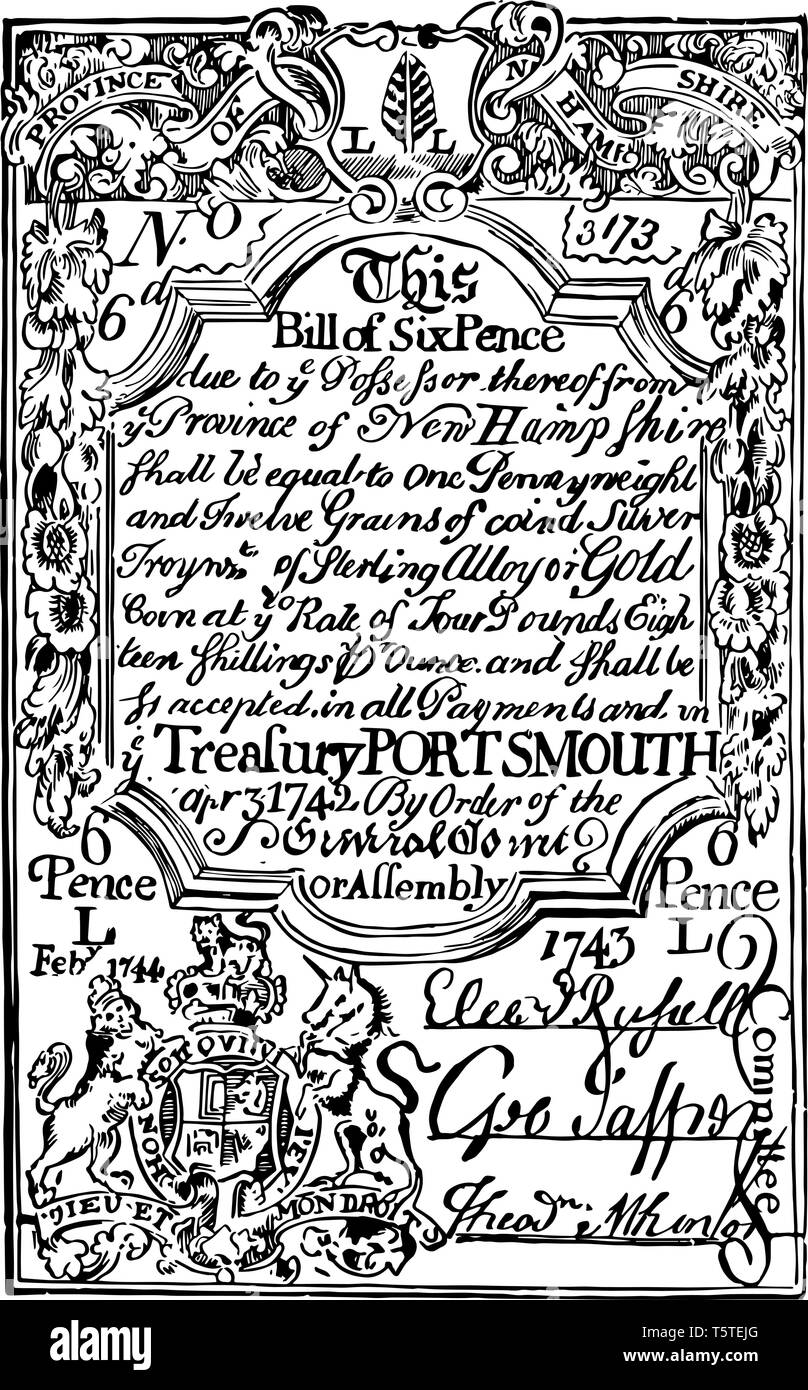 PROVINCE OF N HAMPˢ SHIRE
L L
N.º 3173
6ᵈ 6ᵈ
This
Bill of Six Pence
due to yᵉ Possessor thereof from
yᵉ Province of New Hampshire
shall be equal to One Pennyweight
and Twelve Grains of coind Silver
Troywᵗ. of Sterling Alloy or Gold
Coin at yᵉ Rate of Four Pounds Eigh
teen Shillings ⅌ Ounce. and shall be
so accepted. in all Payments and in
yᵉ Treasury PORTSMOUTH
Apr 3 1742 By Order of the
General Court
or Assembly
6 Pence
6 Pence
L
Febʸ 1744
1743 L
Committee
Geo Jaffrey
Theodʳ Atkinson
HON SOIT QUI MAL
DIEU ET MON DROIT
alamy
alamy
Image ID: T5TEJG
www.alamy.com